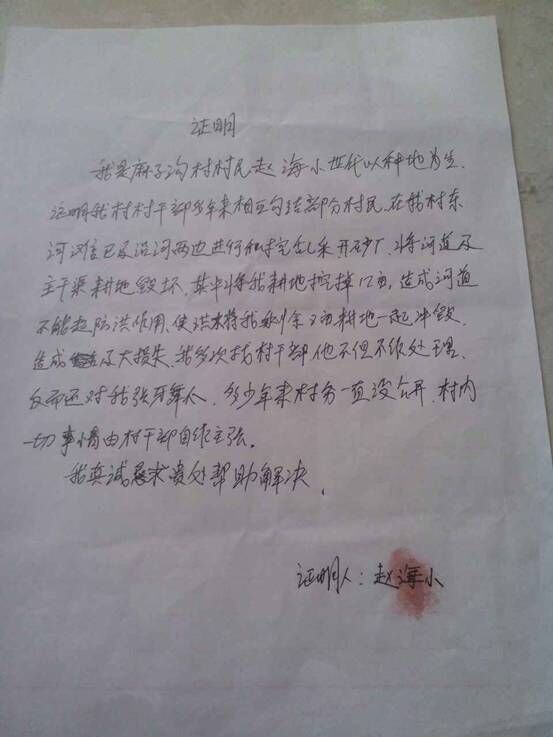 证明
我是麻子沟村村民赵海小世代以种地为生.
证明我村村干部多年来相互勾结部分村民.在我村东
河滩道已及沿河两边进行私挖乱采开砂厂.将河道及
主干渠耕地毁坏.其中将我耕地挖掉12亩.造成河道
不能起防洪作用.使洪水将我剩余 亩耕地一起冲毁.
造成 及大损失.我多次找村干部他不但不给处理.
反而还对我张牙舞人.多少年来村务一直没公开.村内
一切事情由村干部自作主张。
我真诚恳求贵处帮助解决.
证明人：赵海小